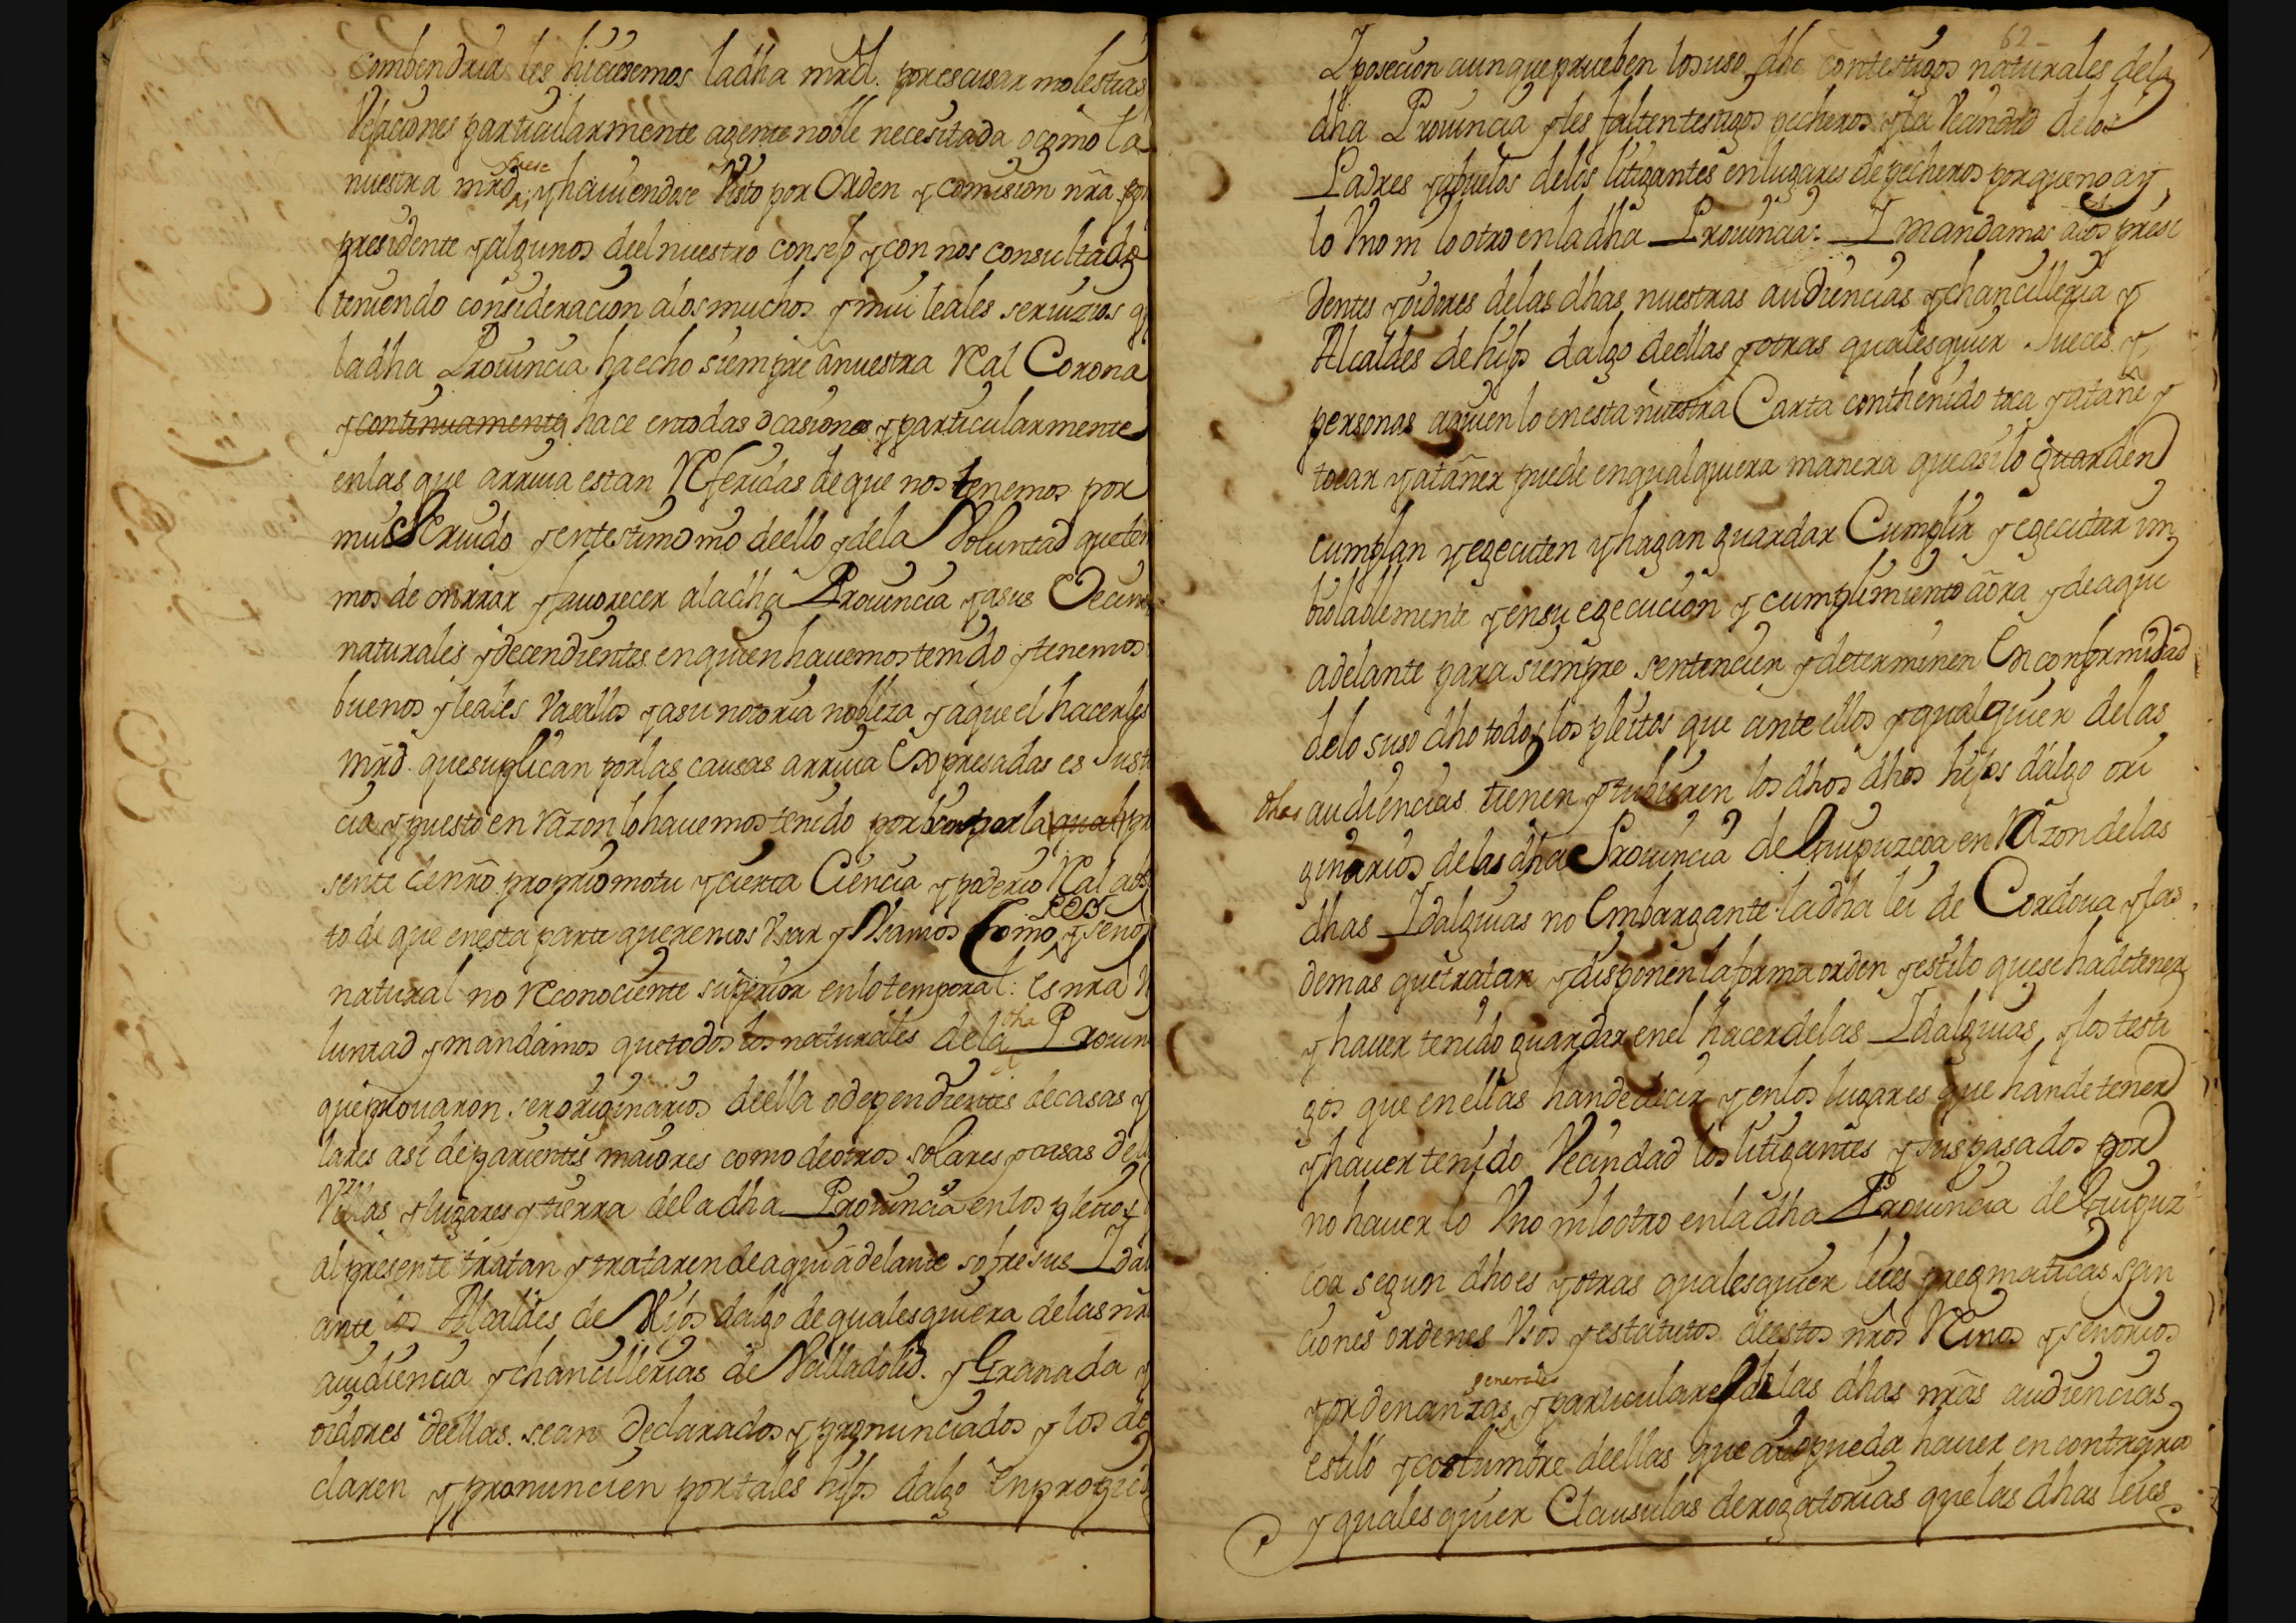 combendria les hiciesemos la dha mrd. por escusar molestias
Vejaciones particularmente a gente noble necesitada o como la
nuestra mrd fuese y haviendose Visto por Orden y comision nra por
presidente y algunos del nuestro consejo y con nos consultado
teniendo consideracion a los muchos y mui leales servizios q
la dha Provincia ha echo siempre a nuestra Real Corona
y continuamente hace en todas ocasiones y particularmente
en las que arriva estan Referidas de que nos tenemos por
mui Servido y en testimonio de ello y de la Voluntad que ten
mos de onrrar y favorecer a la dha Provincia y a sus Vecin
naturales y decendientes en quien havemos tenido y tenemos
buenos y leales Vasallos y a su notoria nobleza y a que el hacerles
mrd. que suplican por las causas arriva Expresadas es Justi
cia y puesto en razon lo havemos tenido por bien por la qual pre
sente de nro proprio motu y cierta Ciencia y poderio Real abs
to de que en esta parte queremos Usar y Usamos Como Rey y señor
natural no Reconociente superior en lo temporal: Es nra Vo
luntad y mandamos que todos los naturales de la dha Provin
que provaron ser originarios de ella o dependientes de casas y
lares asi de parientes maiores como de otros solares y casas de l
Villas y lugares y tierra de la dha Provincia en los pleitos
al presente tratan y trataren de aqui adelante sobre sus Idal
ante los Alcaldes de Hijos dalgo de qualesquiera de las nr
audiencia y chancillerias de Valladolid. y Granada y
oidores de ellas. sean Declarados y pronunciados y los de
claren y pronuncien por tales hijos dalgo En propie
62
I posecion aunque prueben lo suso dho con testigos naturales de la
dha Provincia y les falten testigos pecheros y la Vecindad de los
Padres y abuelos de los litigantes en lugares de pecheros porque no ay
lo Uno ni lo otro en la dha Provincia: I mandamos a los presi
dentes y oidores de las dhas nuestras audiencias y chancilleria y
Alcaldes de hijos dalgo de ellas y otras qualesquier Jueces y
personas a quien lo en esta nuestra Carta conthenido toca y atañe y
tocar y atañer puede en qualquiera manera que asi lo guarden
cumplan y egecuten y hagan guardar Cumplir y egecutar im
biolablemente y en su egecucion y cumplimiento aora y de aqui
adelante para siempre sentencien y determinen En conformidad
de lo suso dho todos los pleitos que ante ellos y qualquier de las
dhas audiencias tienen y tubieren los dhos dhos hijos dalgo ori
ginarios de las dha Provincia de Guipuzcoa en Razon de las
dhas Idalguias no Embargante la dha lei de Cordova y las
demas que tratan y disponen la forma orden y estilo que se ha de tener
y haver tenido guardar en el hacer de las Idalguias y los testi
gos que en ellas han de decir y en los lugares que han de tener
y haver tenido Vecindad los litigantes y sus pasados por
no haver lo Uno ni lo otro en la dha Provincia de Guipuz
coa segun dho es y otras qualesquier leies pregmaticas san
ciones ordenes Usos y estatutos de estos nros Reinos y señorios
y ordenanzas generales y particulares de las dhas nras audiencias
estilo y costumbre de ellas que aia o pueda haver en contrario
y qualesquier Clausulas derogatorias que las dhas leies